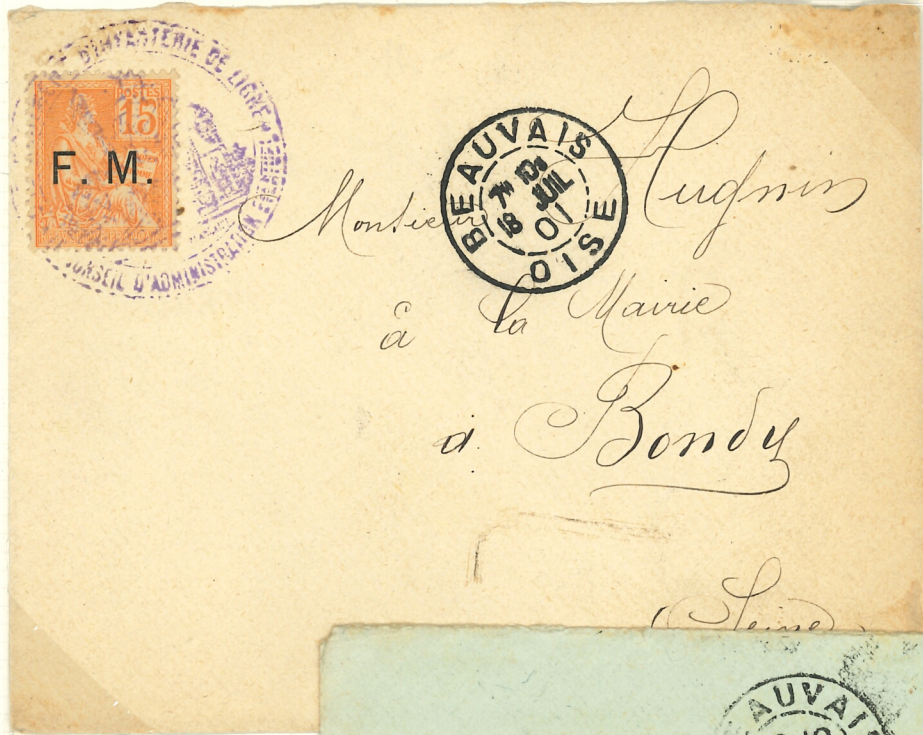 D'INFANTERIE DE LIGNE
POSTES
15
F. M.
CONSEIL D'ADMINISTRATION
BEAUVAIS
7H 10
18 JUIL
01
OISE
Monsieur Hugnin
à la Mairie
à Bondy
(Seine)
BEAUVAIS